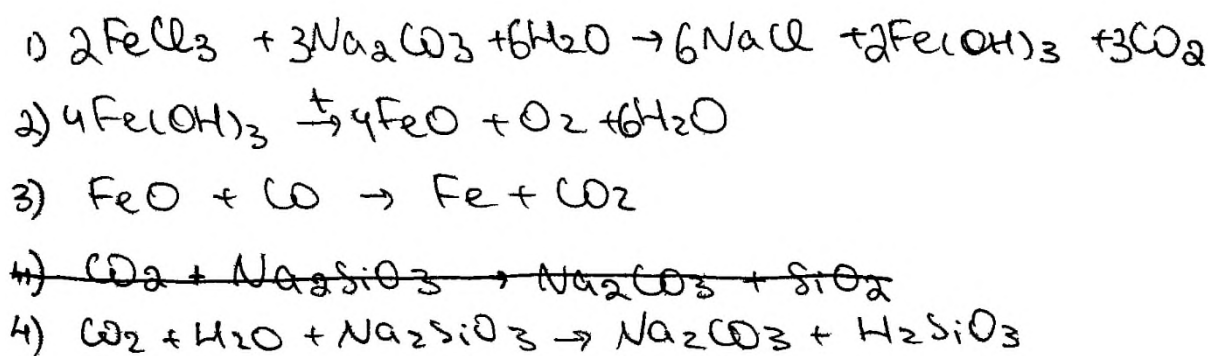 1) 2FeCl3 + 3Na2CO3 + 6H2O → 6NaCl + 2Fe(OH)3 + 3CO2
2) 4Fe(OH)3 t→ 4FeO + O2 + 6H2O
3) FeO + CO → Fe + CO2
4) CO2 + Na2SiO3 → Na2CO3 + SiO2
4) CO2 + H2O + Na2SiO3 → Na2CO3 + H2SiO3